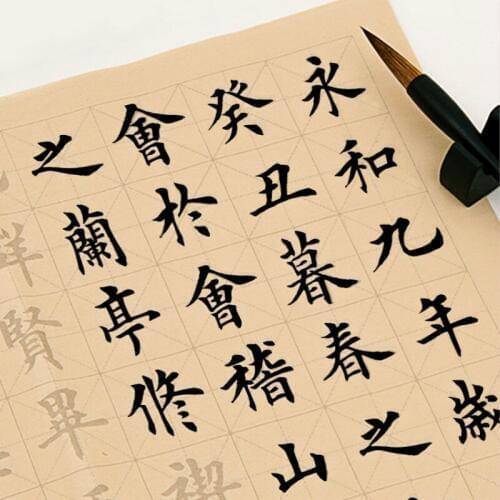 永和九年歲
癸丑暮春之
會於會稽山
之蘭亭修禊
群賢畢